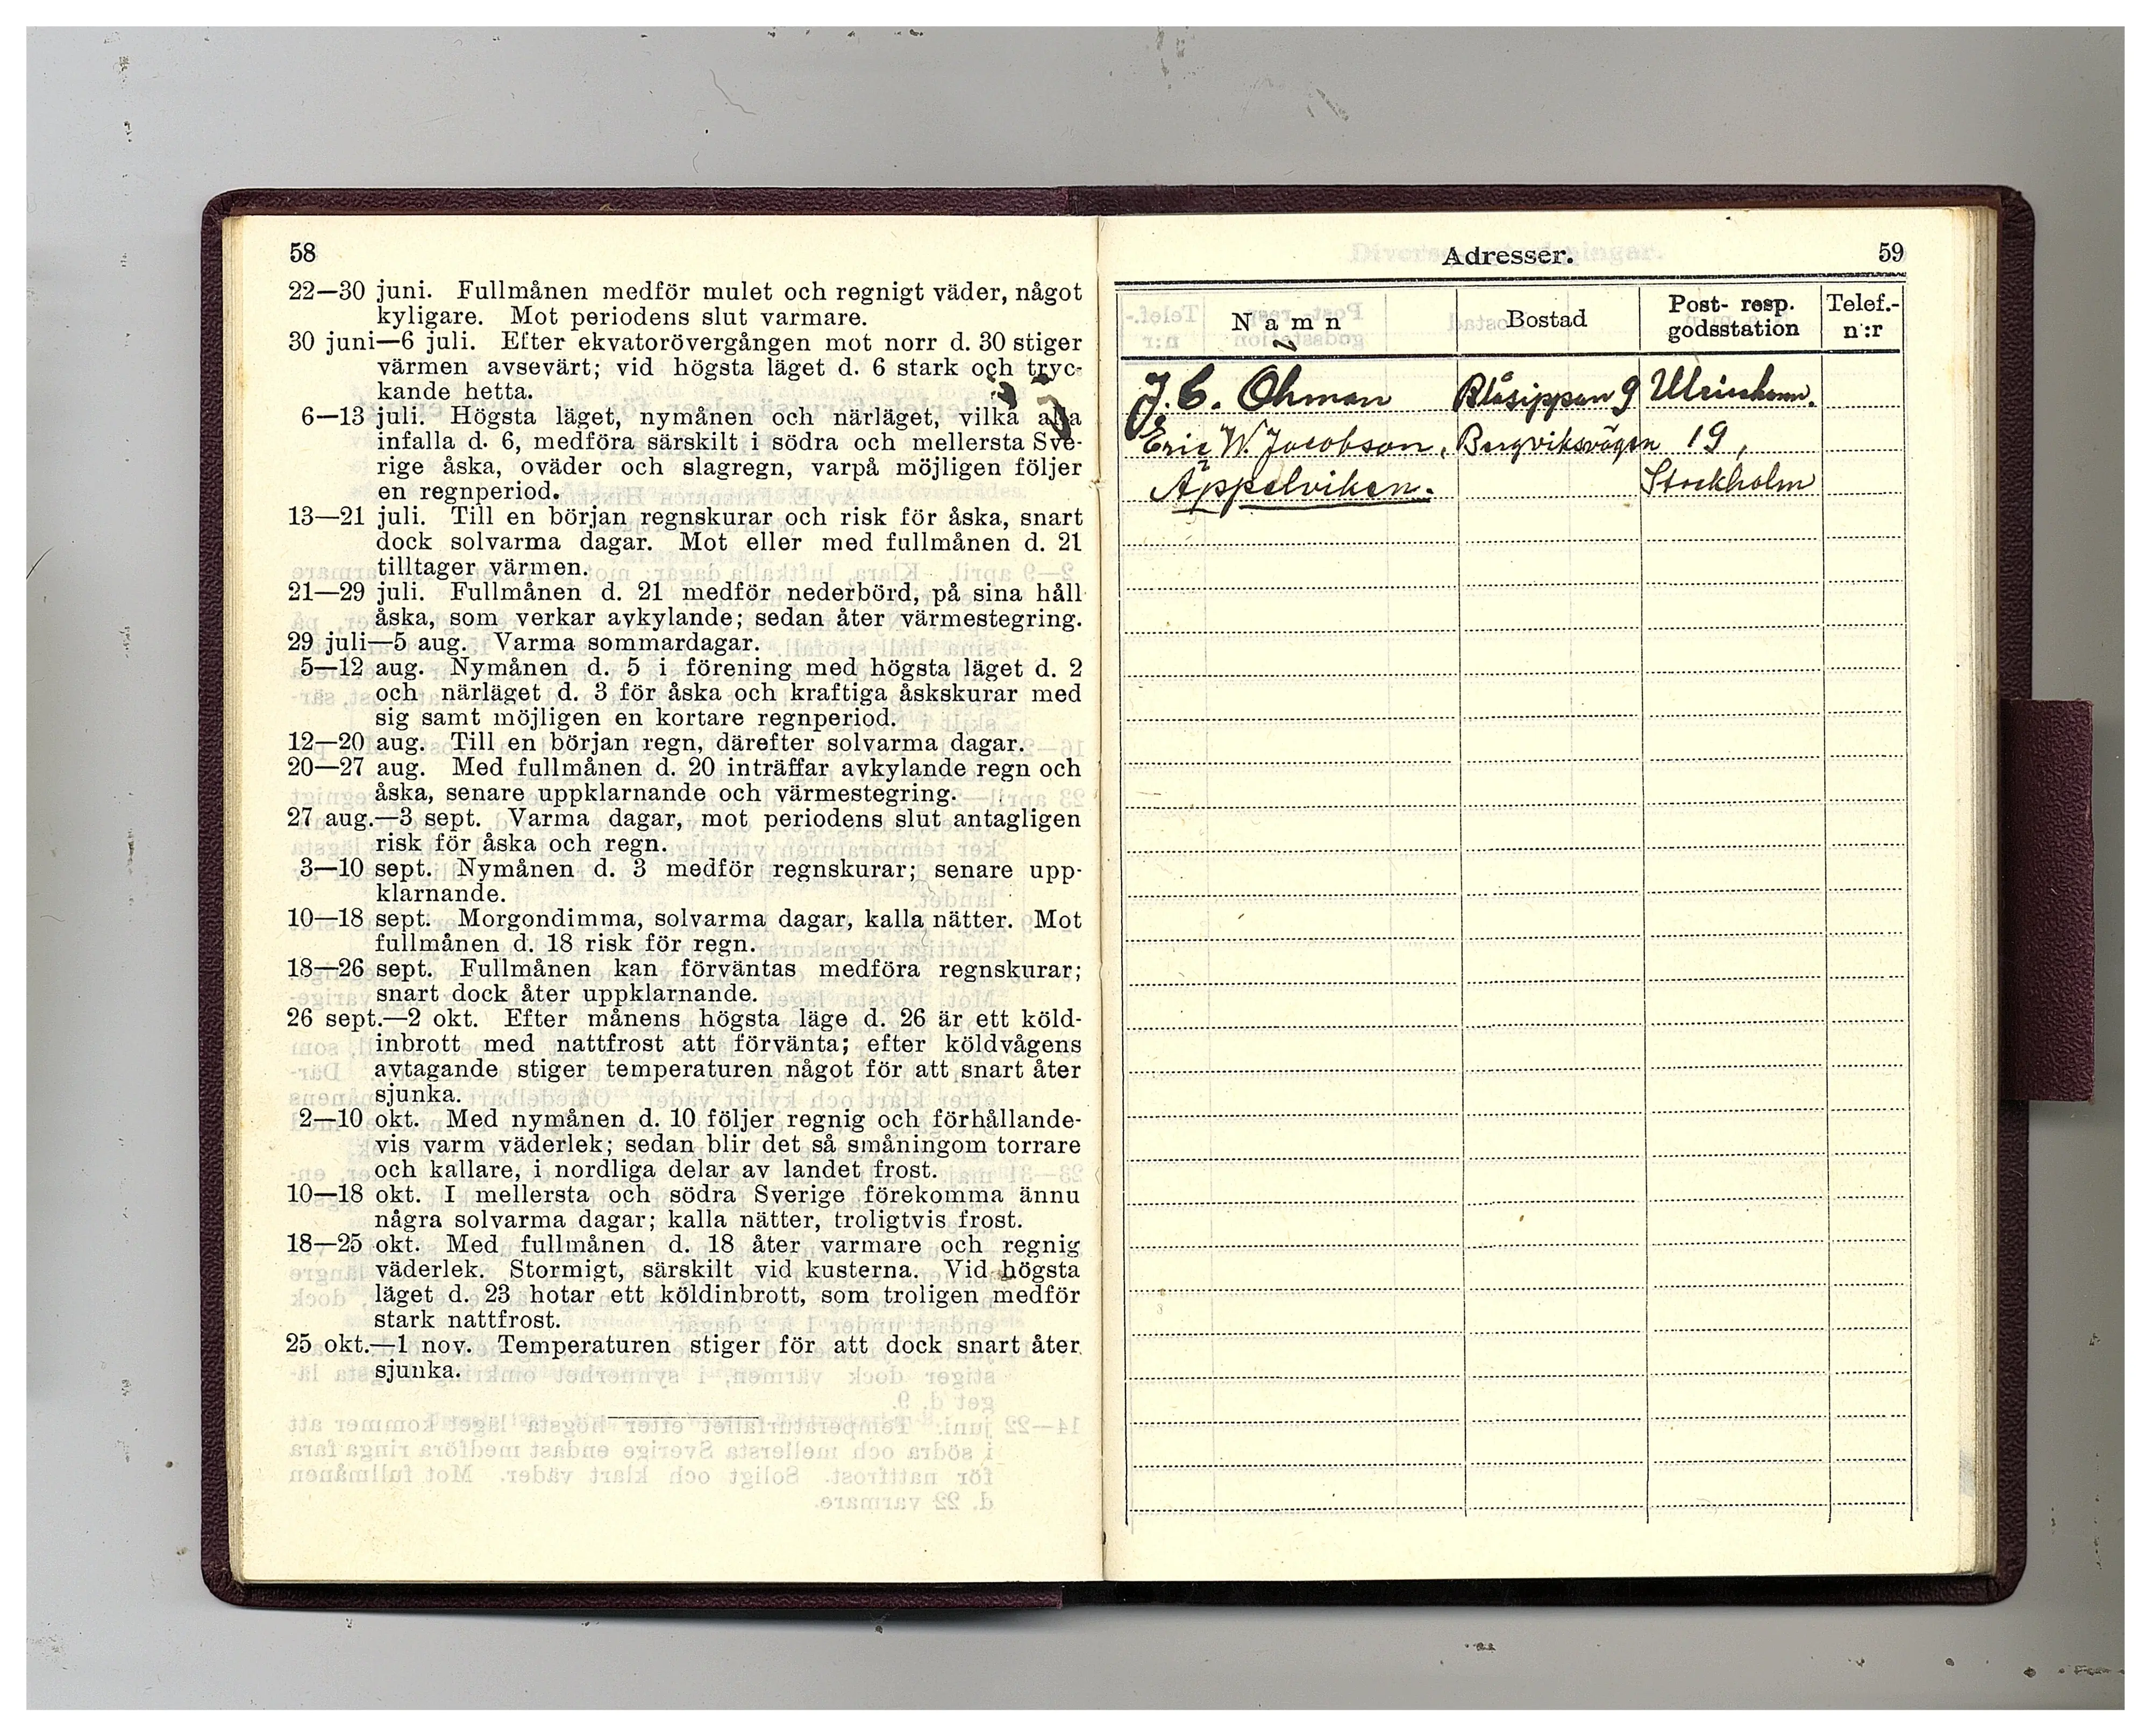 58
22—30 juni. Fullmånen medför mulet och regnigt väder, något
kyligare. Mot periodens slut varmare.
30 juni—6 juli. Efter ekvatorövergången mot norr d. 30 stiger
värmen avsevärt; vid högsta läget d. 6 stark och tryc-
kande hetta.
6—13 juli. Högsta läget, nymånen och närläget, vilka alla
infalla d. 6, medföra särskilt i södra och mellersta Sve-
rige åska, oväder och slagregn, varpå möjligen följer
en regnperiod.
13—21 juli. Till en början regnskurar och risk för åska, snart
dock solvarma dagar. Mot eller med fullmånen d. 21
tilltager värmen.
21—29 juli. Fullmånen d. 21 medför nederbörd, på sina håll
åska, som verkar avkylande; sedan åter värmestegring.
29 juli—5 aug. Varma sommardagar.
5—12 aug. Nymånen d. 5 i förening med högsta läget d. 2
och närläget d. 3 för åska och kraftiga åskskurar med
sig samt möjligen en kortare regnperiod.
12—20 aug. Till en början regn, därefter solvarma dagar.
20—27 aug. Med fullmånen d. 20 inträffar avkylande regn och
åska, senare uppklarnande och värmestegring.
27 aug.—3 sept. Varma dagar, mot periodens slut antagligen
risk för åska och regn.
3—10 sept. Nymånen d. 3 medför regnskurar; senare upp-
klarnande.
10—18 sept. Morgondimma, solvarma dagar, kalla nätter. Mot
fullmånen d. 18 risk för regn.
18—26 sept. Fullmånen kan förväntas medföra regnskurar;
snart dock åter uppklarnande.
26 sept.—2 okt. Efter månens högsta läge d. 26 är ett köld-
inbrott med nattfrost att förvänta; efter köldvågens
avtagande stiger temperaturen något för att snart åter
sjunka.
2—10 okt. Med nymånen d. 10 följer regnig och förhållande-
vis varm väderlek; sedan blir det så småningom torrare
och kallare, i nordliga delar av landet frost.
10—18 okt. I mellersta och södra Sverige förekomma ännu
några solvarma dagar; kalla nätter, troligtvis frost.
18—25 okt. Med fullmånen d. 18 åter varmare och regnig
väderlek. Stormigt, särskilt vid kusterna. Vid högsta
läget d. 23 hotar ett köldinbrott, som troligen medför
stark nattfrost.
25 okt.—1 nov. Temperaturen stiger för att dock snart åter
sjunka.
Adresser. 59
Namn Bostad Post- resp. godsstation Telef.- n:r
J. C. Ohman Blåsippan 9
Eric W. Jacobson, Bergviksvägen 19,
Äppelviken. Stockholm